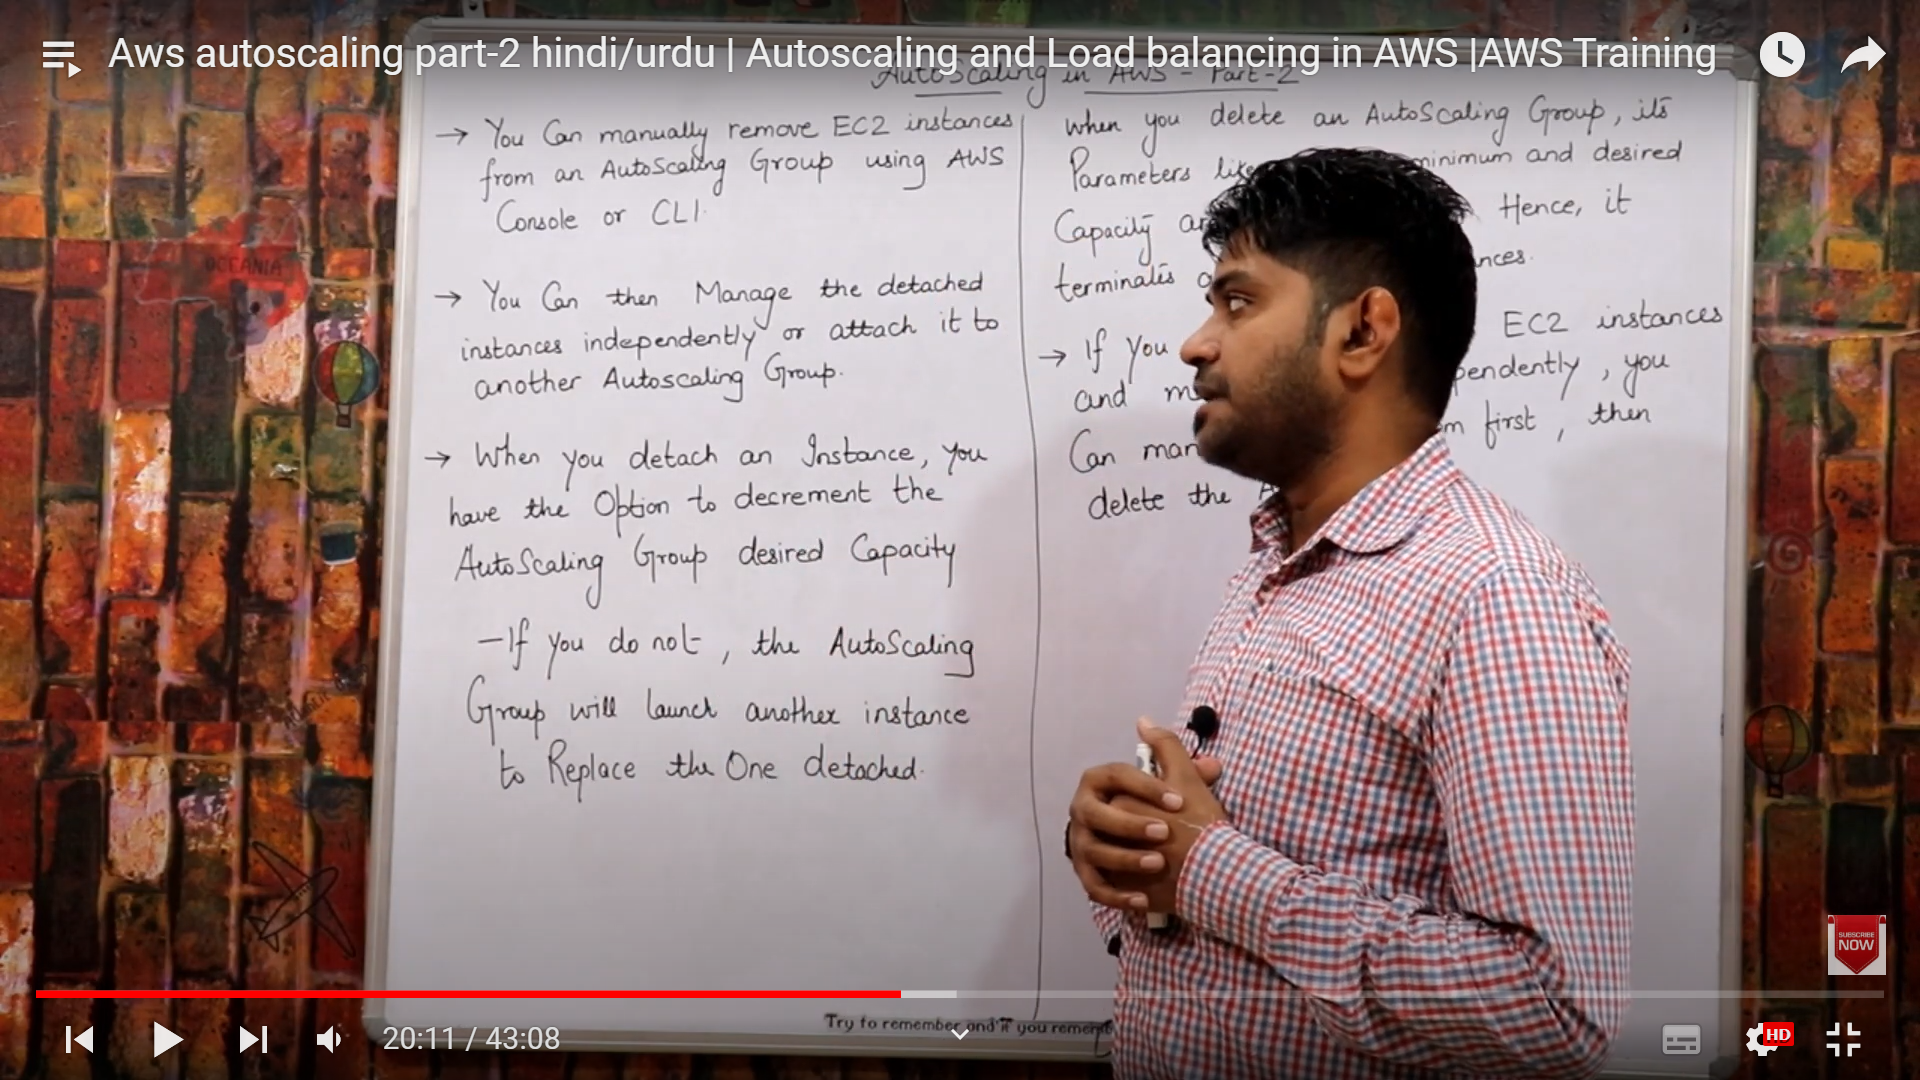 Aws autoscaling part-2 hindi/urdu | Autoscaling and Load balancing in AWS |AWS Training
AutoScaling in AWS - Part-2
→ You Can manually remove EC2 instances
from an AutoScaling Group using AWS
Console or CLI.
→ You Can then Manage the detached
instances independently or attach it to
another Autoscaling Group.
→ When you detach an Instance, you
have the Option to decrement the
AutoScaling Group desired Capacity
- If you do not, the AutoScaling
Group will launch another instance
to Replace the One detached.
When you delete an AutoScaling Group, its
Parameters like minimum and desired
Capacity Hence, it
terminates
→ If you EC2 instances
and , you
Can first, then
delete the
OCEANIA
SUBSCRIBE
NOW
Try to remember and if you
20:11 / 43:08
HD